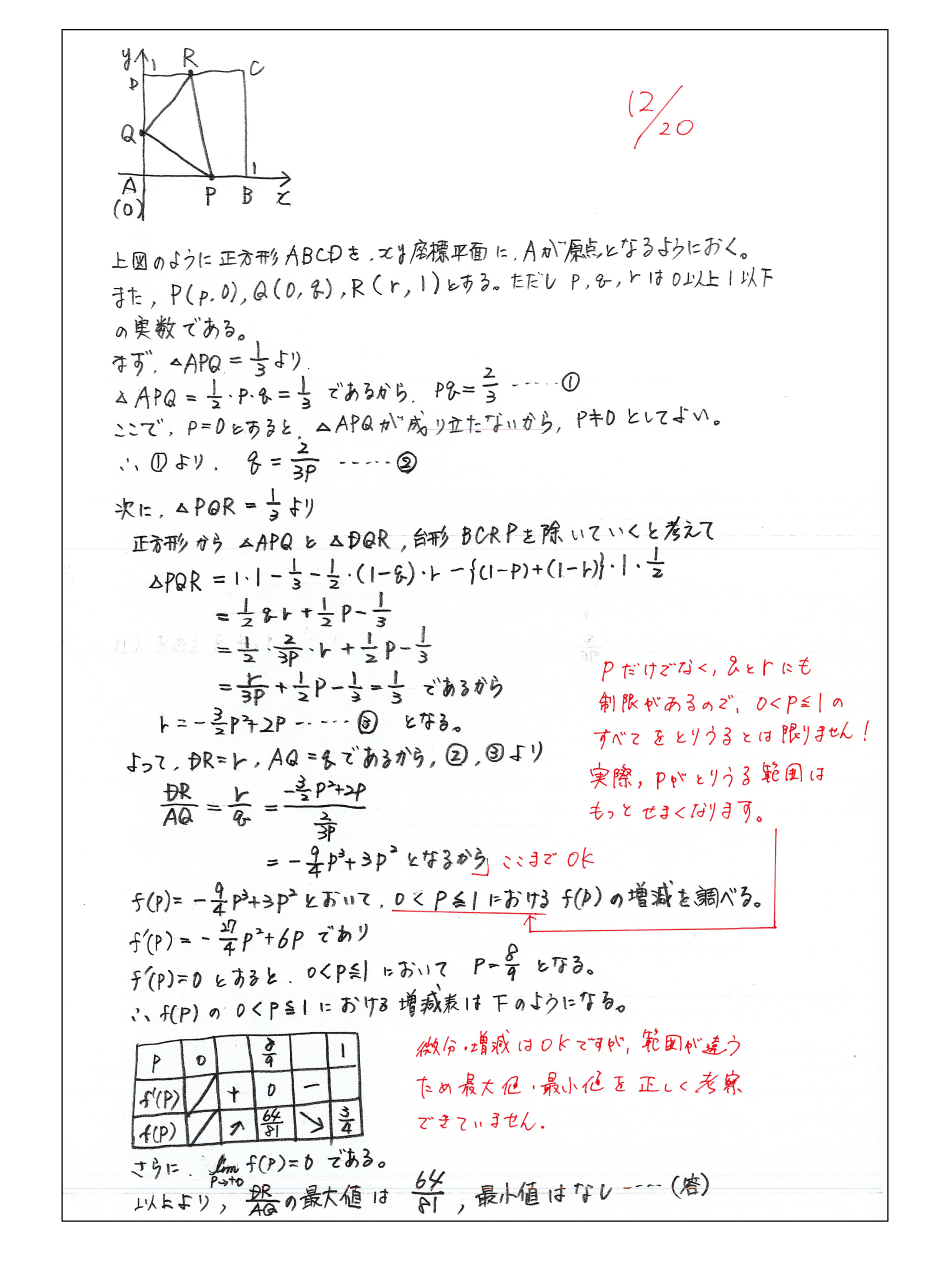 y
1
R
C
D
Q
A
(0)
P
B
1
x
12/20
上図のように正方形ABCDを,xy座標平面に,Aが原点となるようにおく。
また,P(p,0),Q(0,q),R(r,1)とする。ただしp,q,rは0以上1以下
の実数である。
まず,△APQ=1/3より.
△APQ=1/2・p・q=1/3 であるから. pq=2/3 ……①
ここで,p=0とすると,△APQが成り立たないから,p≠0としてよい。
∴①より. q=2/(3p) ……②
次に,△PQR=1/3より
正方形から△APQと△DQR,台形BCRPを除いていくと考えて
△PQR=1・1-1/3-1/2・(1-q)・r-{(1-p)+(1-r)}・1・1/2
=1/2qr+1/2p-1/3
=1/2・2/(3p)・r+1/2p-1/3
=r/(3p)+1/2p-1/3=1/3 であるから
r=-3/2p²+2p ……③ となる。
よって,DR=r,AQ=qであるから,②,③より
DR/AQ=r/q=(-3/2p²+2p)/(2/(3p))
=-9/4p³+3p² となるから」ここまでOK
pだけでなく,qとrにも
制限があるので,0<p≦1の
すべてをとりうるとは限りません!
実際,pがとりうる範囲は
もっとせまくなります。
f(p)=-9/4p³+3p²とおいて,0<p≦1におけるf(p)の増減を調べる。
f'(p)=-27/4p²+6pであり
f'(p)=0とすると.0<p≦1において p=8/9 となる。
∴f(p)の0<p≦1における増減表は下のようになる。
p 0 8/9 1
f'(p) + 0 -
f(p) ↗ 64/81 ↘ 3/4
微分・増減はOKですが,範囲が違う
ため最大値・最小値を正しく考察
できていません.
さらに.lim p→+0 f(p)=0である。
以上より,DR/AQの最大値は 64/81,最小値はなし ……(答)